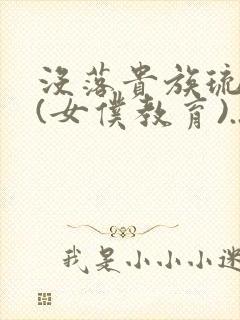 沒落貴族琉
(女僕教育)..
我是小小小迷